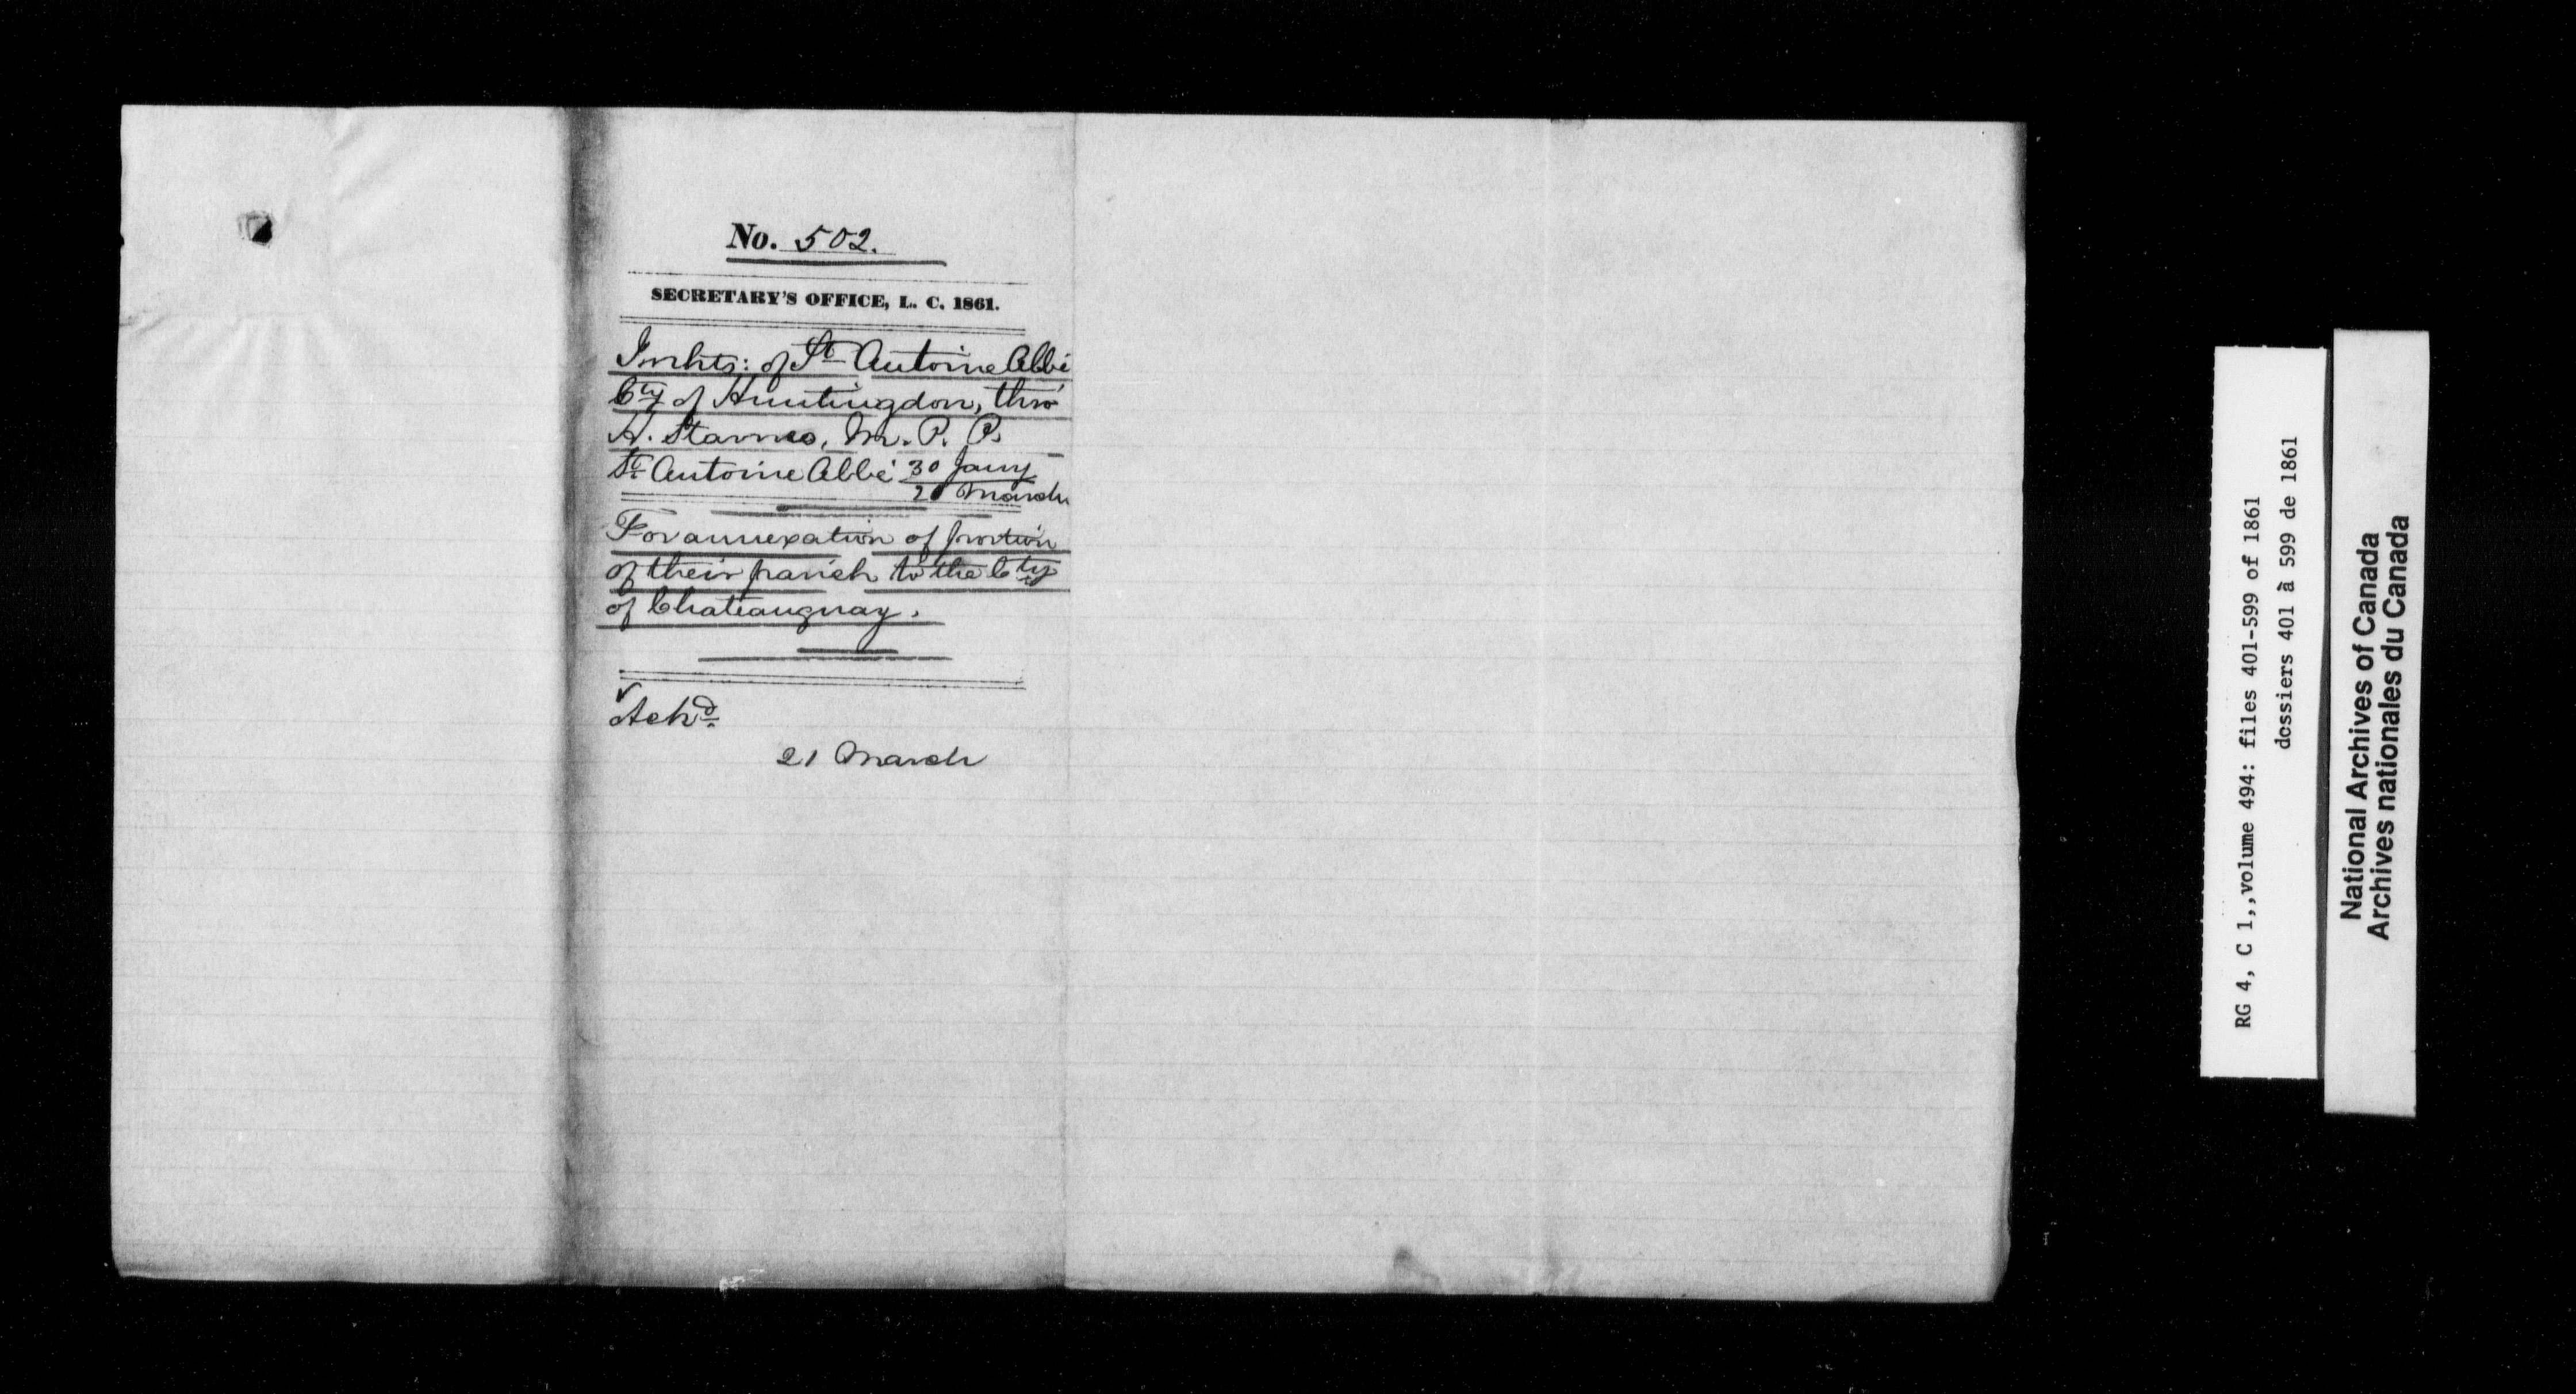 No. 502.
SECRETARY'S OFFICE, L. C. 1861.
Inhts: of St Antoine Abbé
Cty of Huntingdon, thro'
H. Starnes, M. P. P.
St Antoine Abbé 30 Jany
20 March
For annexation of portion
of their parish to the Cty
of Chateauguay.
Ackd.
21 March
RG 4, C 1,,volume 494: files 401-599 of 1861
dossiers 401 à 599 de 1861
National Archives of Canada
Archives nationales du Canada